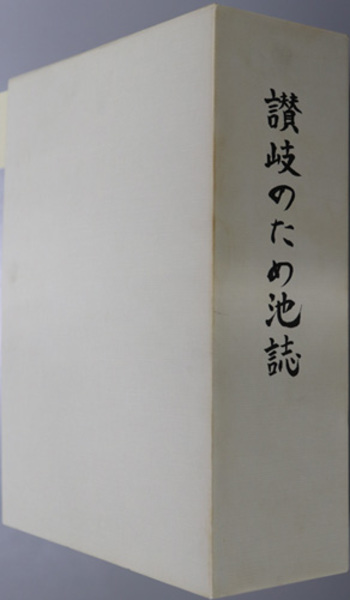 讃岐のため池誌